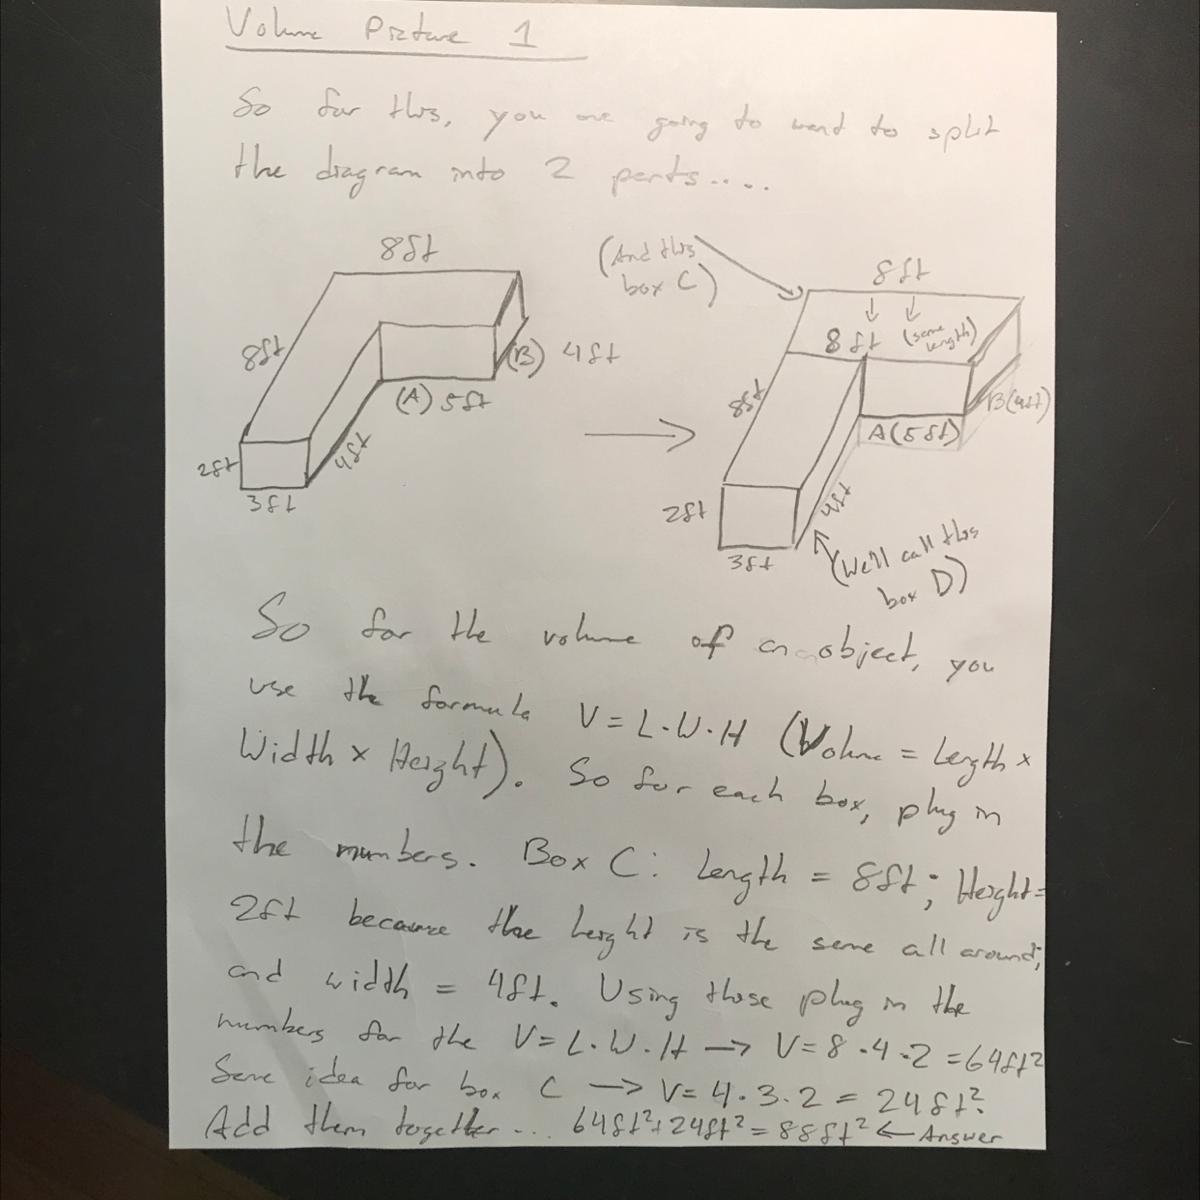 Volume Picture 1
So for this, you are going to want to split
the diagram into 2 parts.....
8ft
8ft
(B) 4ft
(A) 5ft
4ft
2ft
3ft
(And this
box C)
8ft
8ft (same
length)
8ft
B(4ft)
A(5ft)
4ft
2ft
3ft
(We'll call this
box D)
So for the volume of an object, you
use the formula V=L·W·H (Volume = Length ×
Width × Height). So for each box, plug in
the numbers. Box C: Length = 8ft; Height=
2ft because the height is the same all around;
and width = 4ft. Using those plug in the
numbers for the V=L·W·H → V=8·4·2=64ft²
Same idea for box C → V=4·3·2=24ft².
Add them together... 64ft²+24ft²=88ft² ← Answer